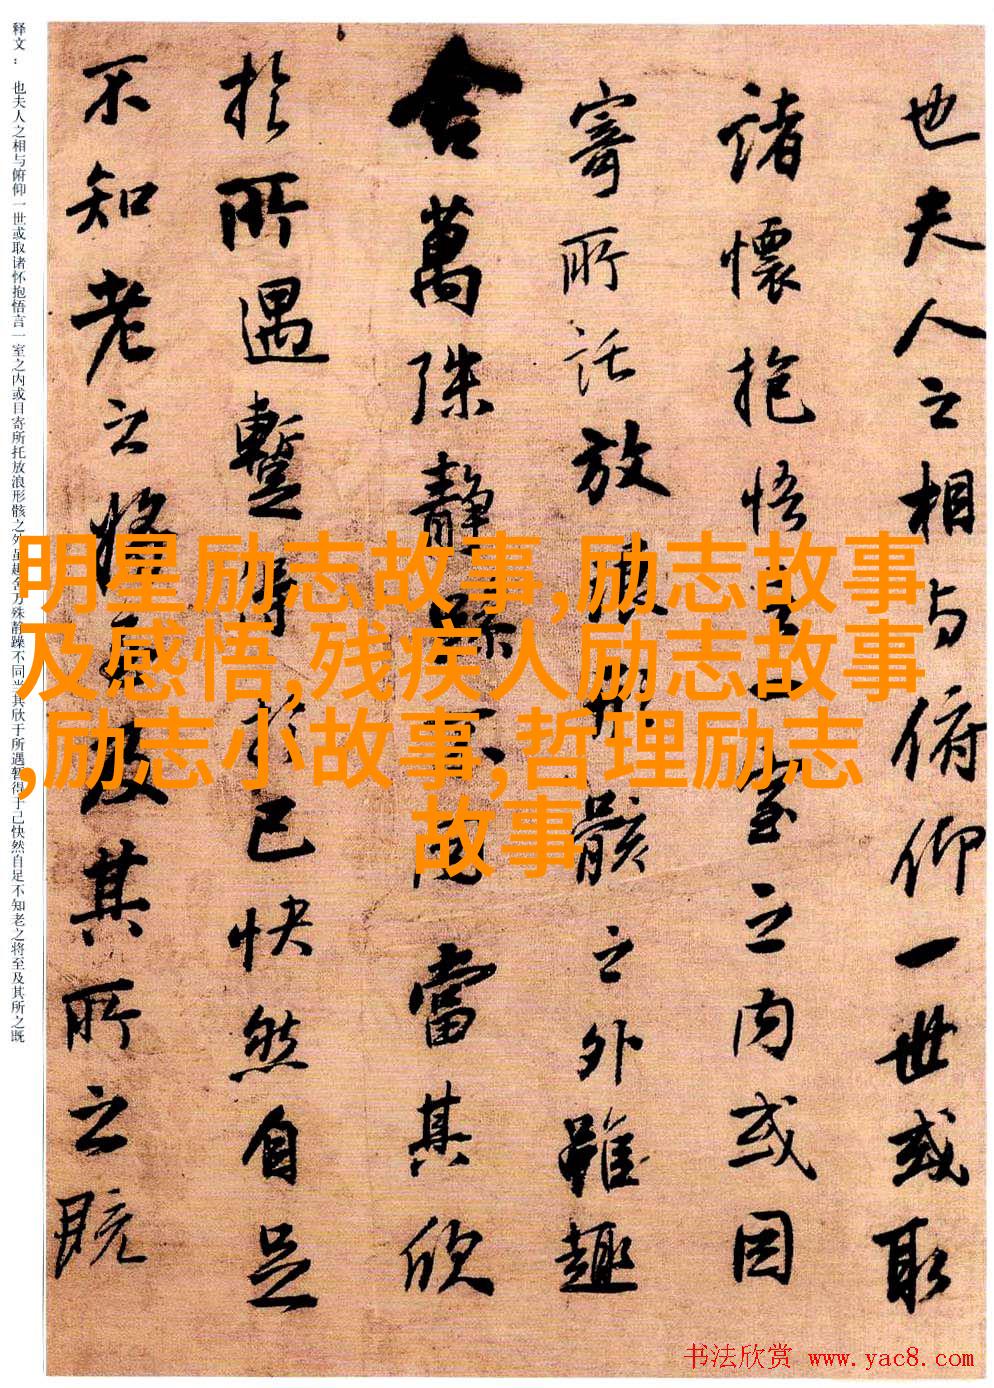 也夫人之相与俯仰一世或取
諸懷抱悟言一室之内或因
寄所託放浪形骸之外雖趣
舍萬殊静躁不同當其欣
於所遇蹔得於己快然自足
不知老之将至及其所之既
释文：也夫人之相与俯仰一世或取诸怀抱悟言一室之内或因寄所托放浪形骸之外虽趣舍万殊静躁不同当其欣于所遇暂得于己快然自足不知老之将至及其所之既
明星励志故事,励志故事
及感悟,残疾人励志故事
,励志小故事,哲理励志
故事
书法欣赏 www.yac8.com